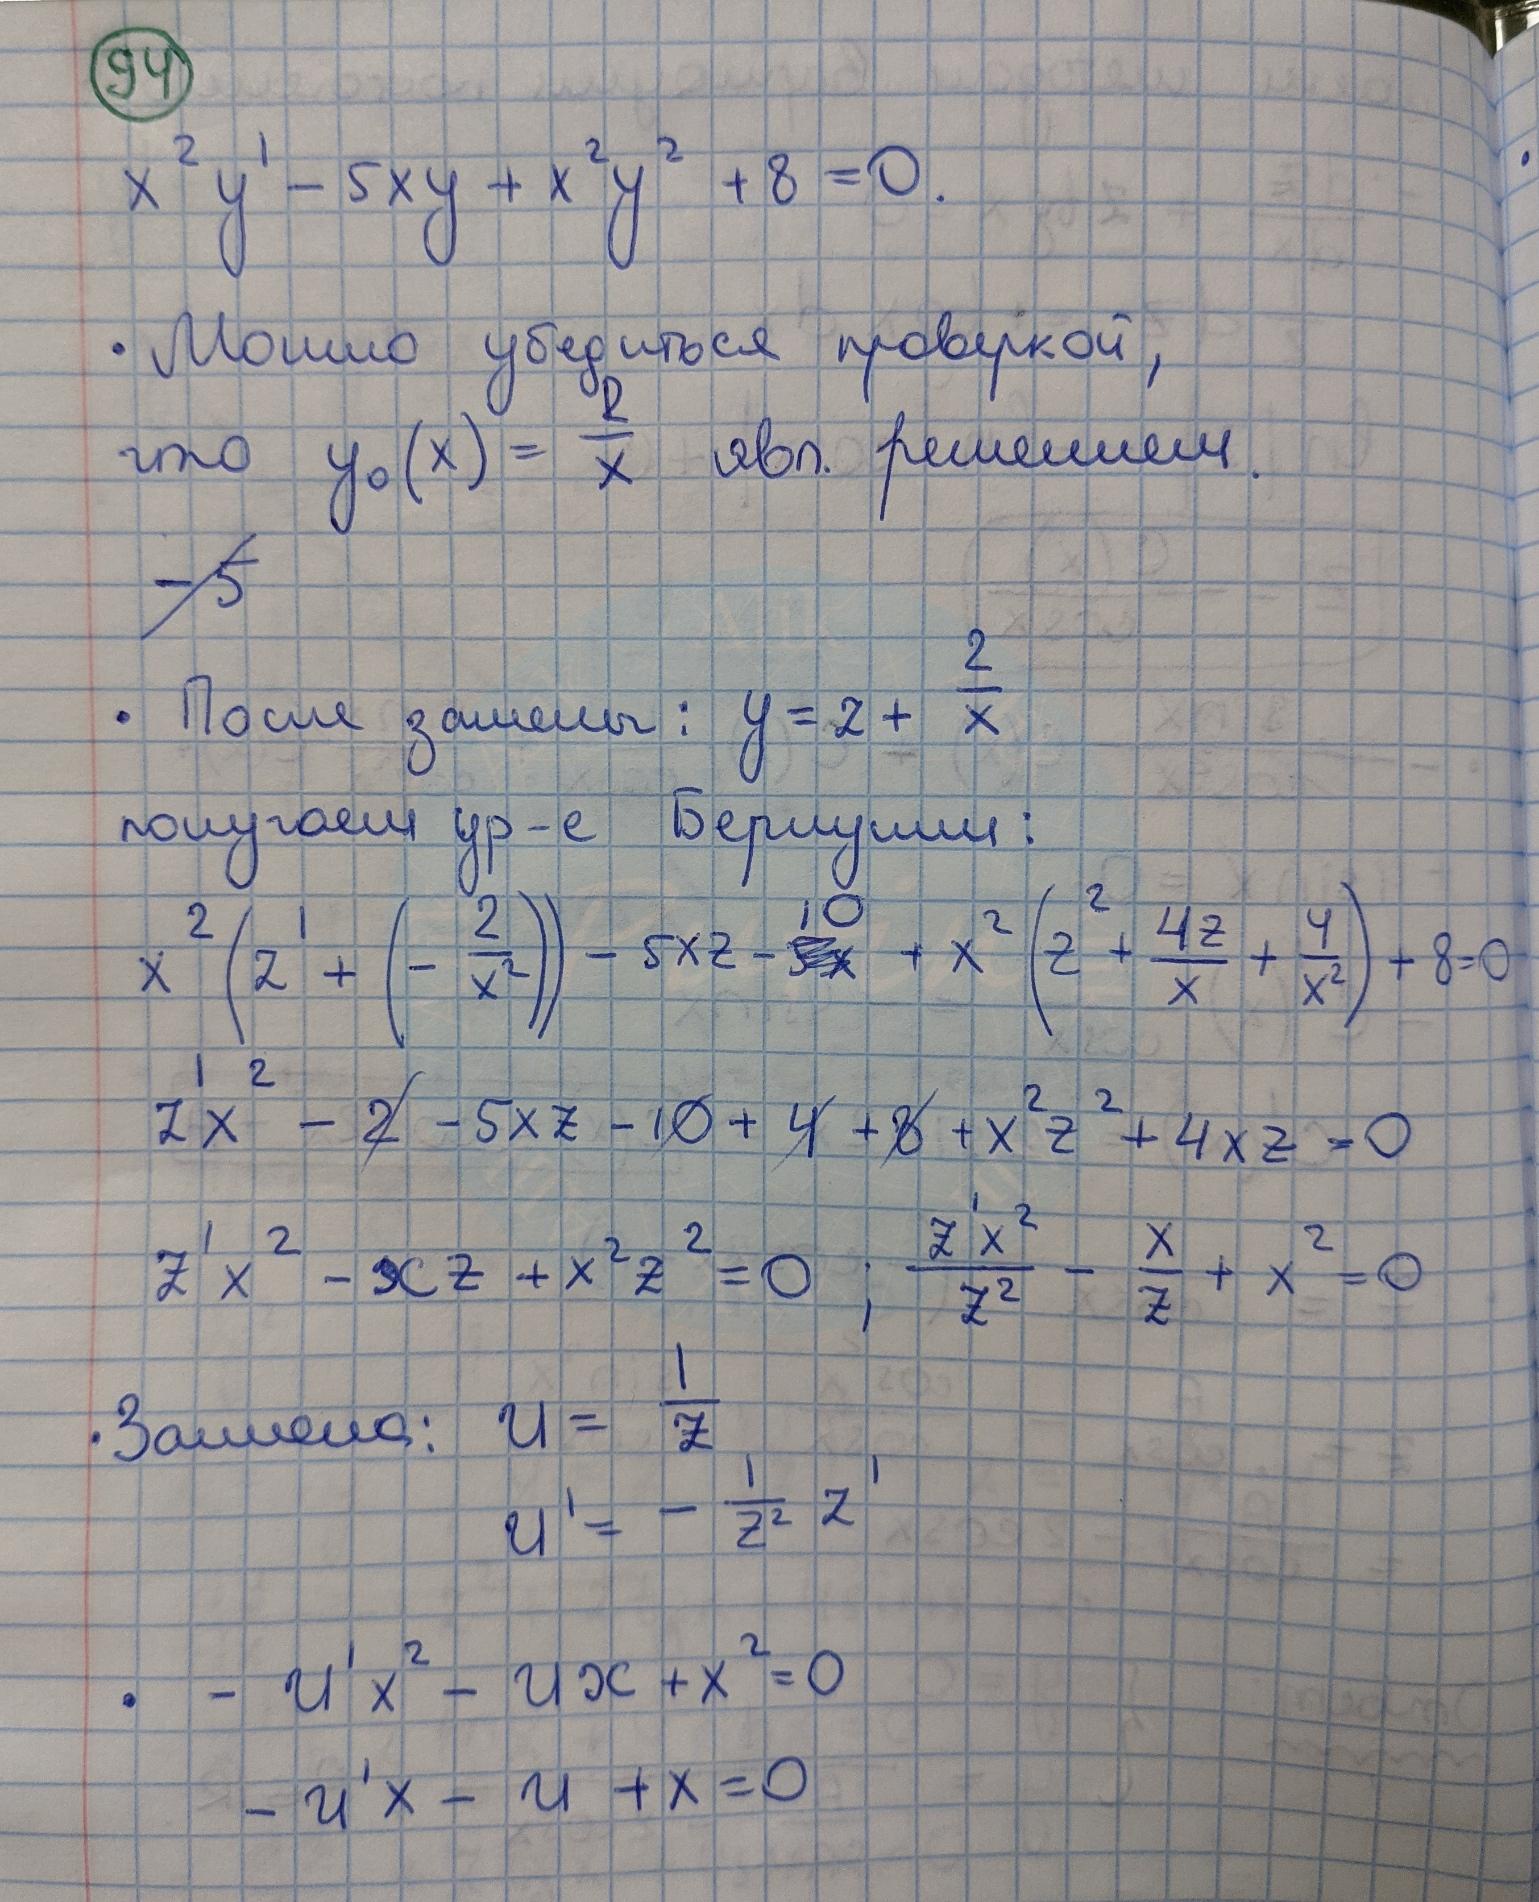 94
x² y' - 5xy + x²y² + 8 = 0.
• Можно убедиться проверкой,
что y₀(x) = 2/x явл. решением.
-5
• После замены: y = z + 2/x
получаем ур-е Бернулли:
x² (z' + (- 2/x²)) - 5xz - 10 + x² (z² + 4z/x + 4/x²) + 8 = 0
z'x² - 2 - 5xz - 10 + 4 + 8 + x²z² + 4xz = 0
z'x² - xz + x²z² = 0 ; z'x²/z² - x/z + x² = 0
• Замена: u = 1/z
u' = - 1/z² z'
• - u'x² - ux + x² = 0
- u'x - u + x = 0